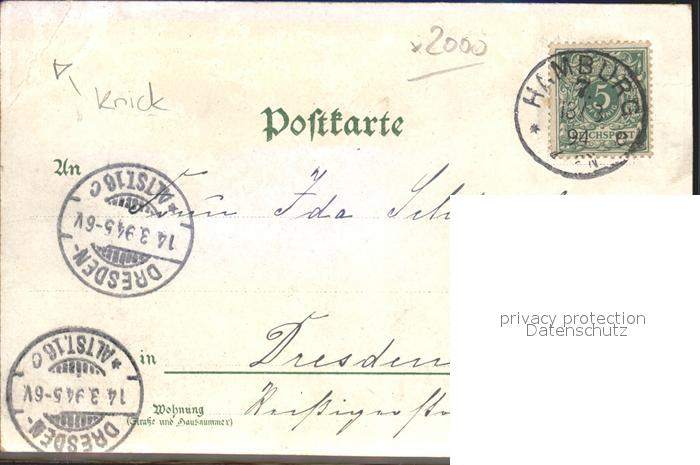 x2000
Knick
Postkarte
HAMBURG
5
REICHSPOST
94
An
Frau Ida
DRESDEN-
*ALTST.16 c
14.3.94.5-6V.
privacy protection
Datenschutz
in Dresden
DRESDEN-
*ALTST.16 c
14.3.94.5-6V.
Wohnung
(Straße und Hausnummer)